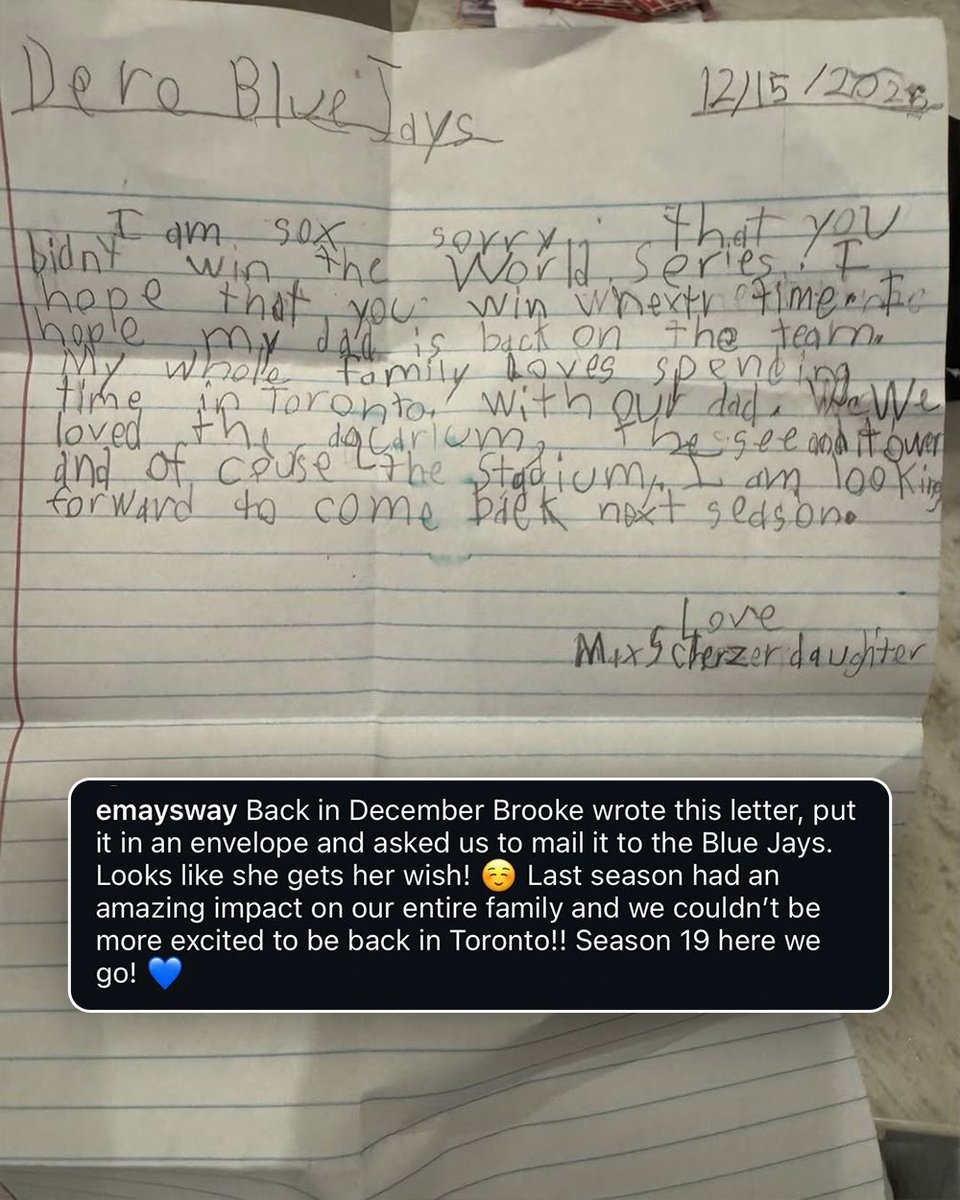 Dero Blue Jays
12/15/2025
I am sox sorry that you
bidnt win the World series. I
hope that you win whextr time. I
hople my dad is back on the team.
My whole family loves spending
time in Toronto. with our dad. We We
loved the aqcarium, the see and it over
and of couse the stadium, I am looking
forward to come back next season.
Love
Max Scherzer daughter
emaysway Back in December Brooke wrote this letter, put
it in an envelope and asked us to mail it to the Blue Jays.
Looks like she gets her wish! ☺️ Last season had an
amazing impact on our entire family and we couldn’t be
more excited to be back in Toronto!! Season 19 here we
go! 💙